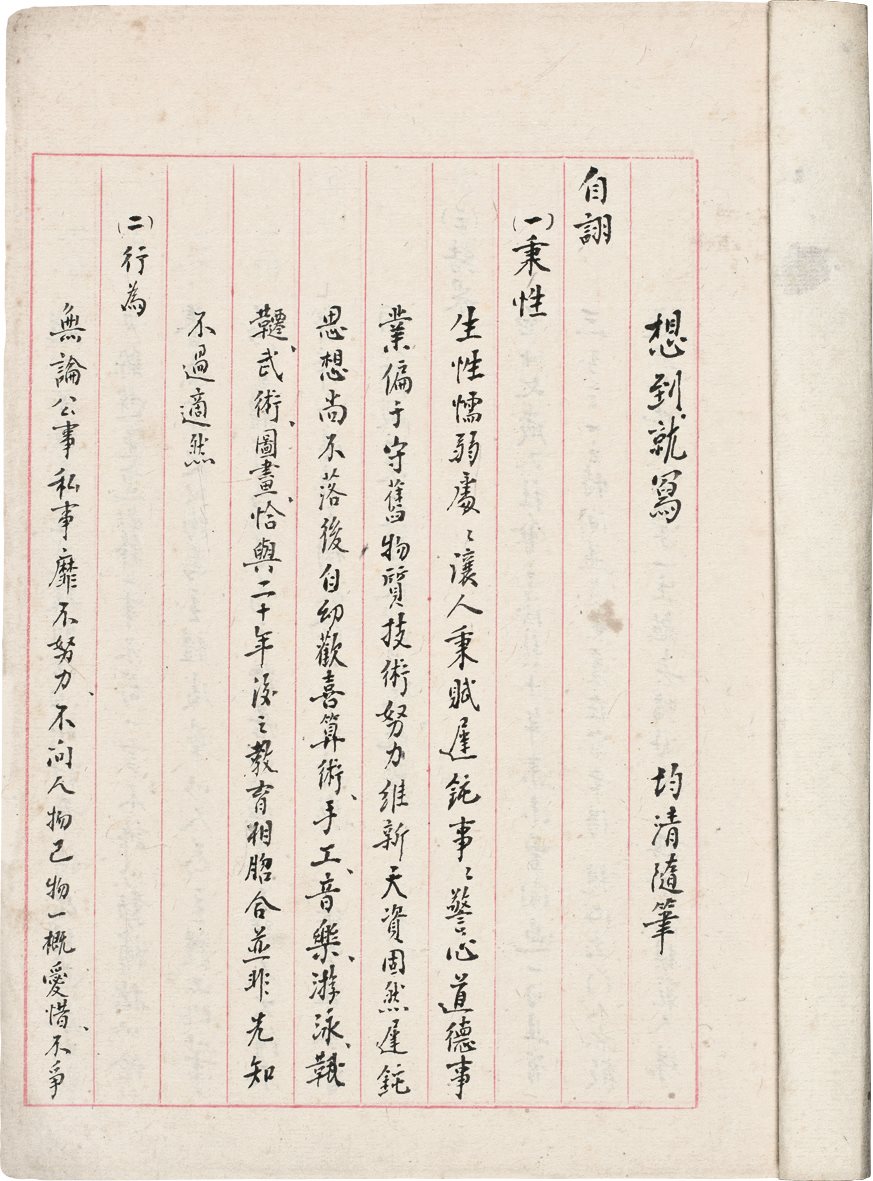 想到就寫 均清隨筆
自詡
(一)秉性
生性懦弱處〻讓人秉賦遲鈍事〻警心道德事
業偏于守舊物質技術努力維新天資固然遲鈍
思想尚不落後自幼歡喜算術、手工、音樂、游泳、鞦
韆、武術、圖畫、恰與二十年後之教育相脗合並非先知
不過適然
(二)行為
無論公事私事靡不努力、不问人物己物一概愛惜、不爭